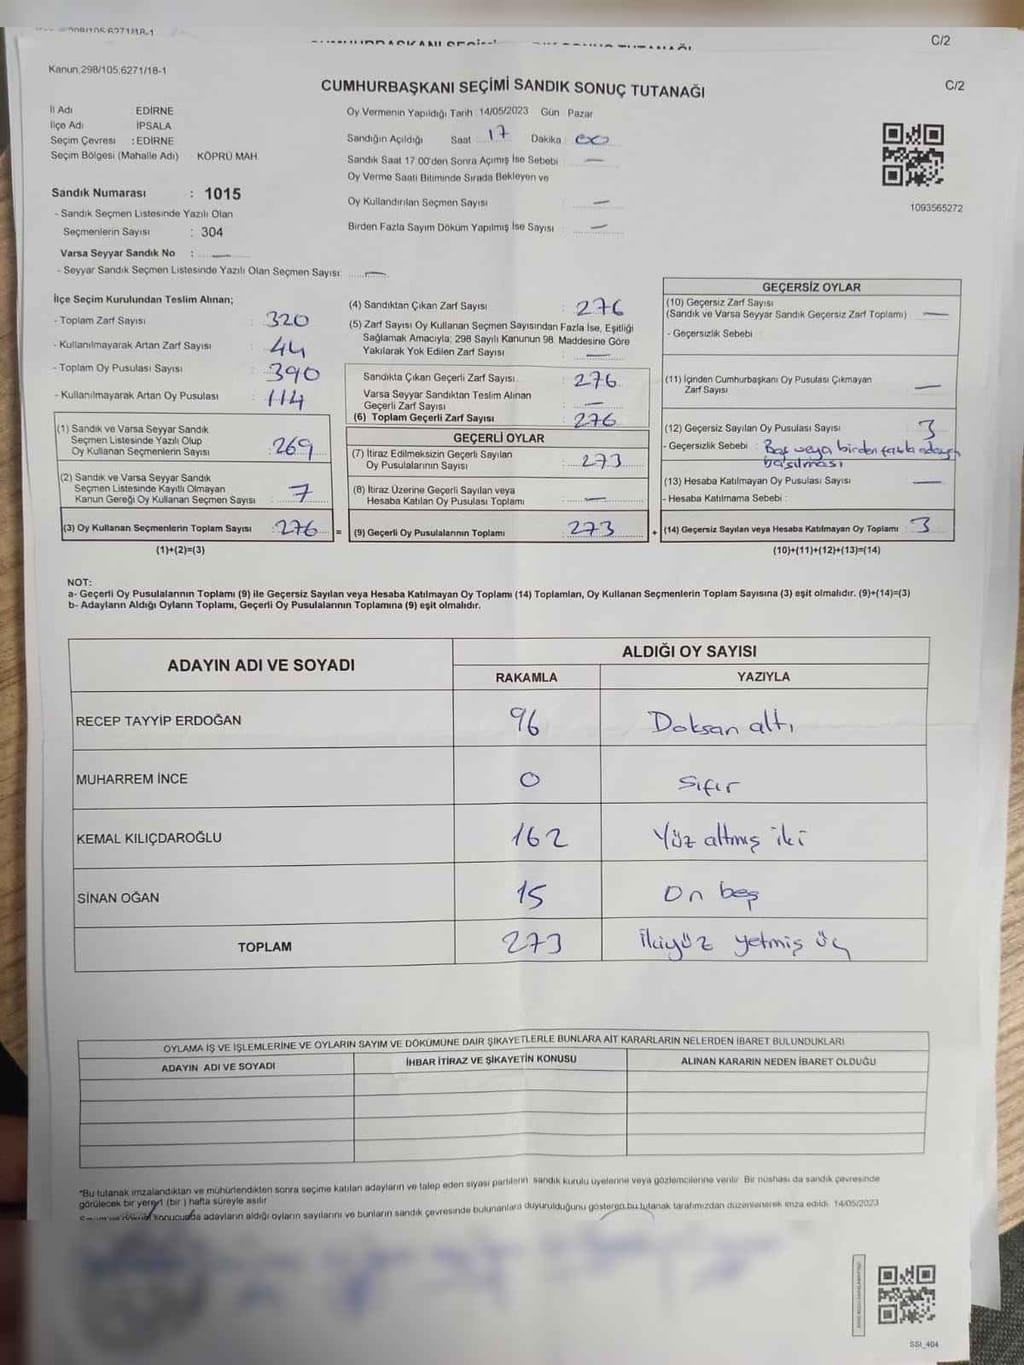 C/2
Kanun,298/105;6271/18-1
CUMHURBAŞKANI SEÇİMİ SANDIK SONUÇ TUTANAĞI
C/2
İl Adı EDİRNE
İlçe Adı İPSALA
Seçim Çevresi : EDİRNE
Seçim Bölgesi (Mahalle Adı) KÖPRÜ MAH.
Sandık Numarası : 1015
- Sandık Seçmen Listesinde Yazılı Olan
Seçmenlerin Sayısı : 304
Varsa Seyyar Sandık No : —
- Seyyar Sandık Seçmen Listesinde Yazılı Olan Seçmen Sayısı: —
Oy Vermenin Yapıldığı Tarih 14/05/2023 Gün Pazar
Sandığın Açıldığı Saat 17 Dakika 00
Sandık Saat 17:00'den Sonra Açımış İse Sebebi —
Oy Verme Saati Bitiminde Sırada Bekleyen ve
Oy Kullandırılan Seçmen Sayısı —
Birden Fazla Sayım Döküm Yapılmış İse Sayısı —
1093565272
İlçe Seçim Kurulundan Teslim Alınan;
- Toplam Zarf Sayısı : 320
- Kullanılmayarak Artan Zarf Sayısı : 44
- Toplam Oy Pusulası Sayısı : 390
- Kullanılmayarak Artan Oy Pusulası : 114
(1) Sandık ve Varsa Seyyar Sandık
Seçmen Listesinde Yazılı Olup
Oy Kullanan Seçmenlerin Sayısı : 269
(2) Sandık ve Varsa Seyyar Sandık
Seçmen Listesinde Kayıtlı Olmayan
Kanun Gereği Oy Kullanan Seçmen Sayısı : 7
(3) Oy Kullanan Seçmenlerin Toplam Sayısı : 276 =
(1)+(2)=(3)
(4) Sandıktan Çıkan Zarf Sayısı : 276
(5) Zarf Sayısı Oy Kullanan Seçmen Sayısından Fazla İse, Eşitliği
Sağlamak Amacıyla; 298 Sayılı Kanunun 98. Maddesine Göre
Yakılarak Yok Edilen Zarf Sayısı : —
Sandıkta Çıkan Geçerli Zarf Sayısı : 276
Varsa Seyyar Sandıktan Teslim Alınan
Geçerli Zarf Sayısı : —
(6) Toplam Geçerli Zarf Sayısı : 276
GEÇERLİ OYLAR
(7) İtiraz Edilmeksizin Geçerli Sayılan
Oy Pusulalarının Sayısı : 273
(8) İtiraz Üzerine Geçerli Sayılan veya
Hesaba Katılan Oy Pusulası Toplamı : —
(9) Geçerli Oy Pusulalarının Toplamı : 273 +
GEÇERSİZ OYLAR
(10) Geçersiz Zarf Sayısı
(Sandık ve Varsa Seyyar Sandık Geçersiz Zarf Toplamı) : —
- Geçersizlik Sebebi :
(11) İçinden Cumhurbaşkanı Oy Pusulası Çıkmayan
Zarf Sayısı : —
(12) Geçersiz Sayılan Oy Pusulası Sayısı : 3
- Geçersizlik Sebebi : Boş veya birden fazla adaya
basılması
(13) Hesaba Katılmayan Oy Pusulası Sayısı : —
- Hesaba Katılmama Sebebi :
(14) Geçersiz Sayılan veya Hesaba Katılmayan Oy Toplamı : 3
(10)+(11)+(12)+(13)=(14)
NOT:
a- Geçerli Oy Pusulalarının Toplamı (9) ile Geçersiz Sayılan veya Hesaba Katılmayan Oy Toplamı (14) Toplamları, Oy Kullanan Seçmenlerin Toplam Sayısına (3) eşit olmalıdır. (9)+(14)=(3)
b- Adayların Aldığı Oyların Toplamı, Geçerli Oy Pusulalarının Toplamına (9) eşit olmalıdır.
ADAYIN ADI VE SOYADI
ALDIĞI OY SAYISI
RAKAMLA YAZIYLA
RECEP TAYYİP ERDOĞAN 96 Doksan altı
MUHARREM İNCE 0 Sıfır
KEMAL KILIÇDAROĞLU 162 Yüz altmış iki
SİNAN OĞAN 15 On beş
TOPLAM 273 İkiyüz yetmiş üç
OYLAMA İŞ VE İŞLEMLERİNE VE OYLARIN SAYIM VE DÖKÜMÜNE DAİR ŞİKAYETLERLE BUNLARA AİT KARARLARIN NELERDEN İBARET BULUNDUKLARI
ADAYIN ADI VE SOYADI İHBAR İTİRAZ VE ŞİKAYETİN KONUSU ALINAN KARARIN NEDEN İBARET OLDUĞU
*Bu tutanak imzalandıktan ve mühürlendikten sonra seçime katılan adayların ve talep eden siyasi partilerin sandık kurulu üyelerine veya gözlemcilerine verilir. Bir nüshası da sandık çevresinde
görülecek bir yere (bir ) hafta süreyle asılır
sonucunda adayların aldığı oyların sayılarını ve bunların sandık çevresinde bulunanlara duyurulduğunu gösteren bu tutanak tarafımızdan düzenlenerek imza edildi. 14/05/2023
SSİ_404